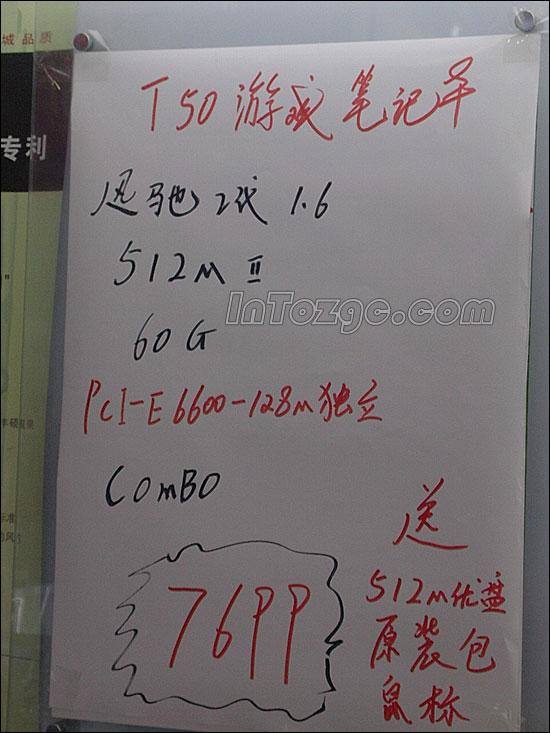 城品质
专利
T50 游戏笔记本
迅驰2代 1.6
512M II
InTozgc.com
60G
PCI-E 6600-128M独立
COMBO
7699
送
512M优盘
原装包
鼠标